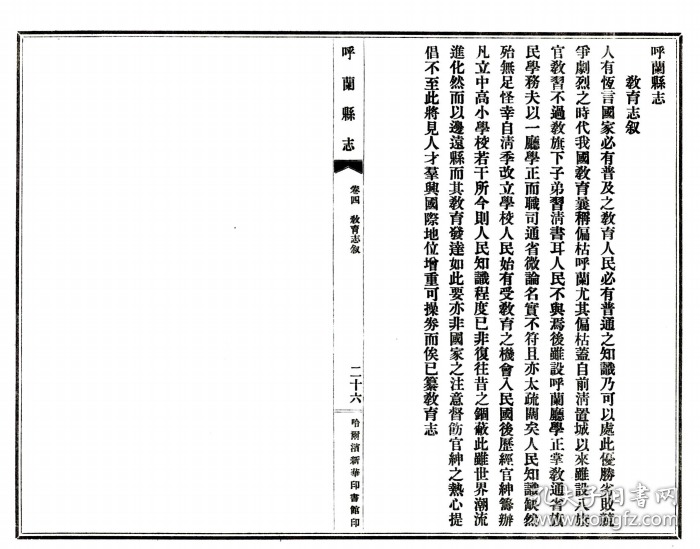 呼蘭縣志
教育志叙
人有恆言國家必有普及之教育人民必有普通之知識乃可以處此優勝劣敗競
爭劇烈之時代我國教育曩稱偏枯呼蘭尤其偏枯蓋自前淸置城以來雖設八旗
官教習不過教旗下子弟習淸書耳人民不與焉後雖設呼蘭廳學正掌教通省旗
民學務夫以一廳學正而職司通省微論名實不符且亦太疏闊矣人民知識缺然
殆無足怪幸自淸季改立學校人民始有受教育之機會入民國後歷經官紳籌辦
凡立中高小學校若干所今則人民知識程度已非復往昔之錮蔽此雖世界潮流
進化然而以邊遠縣而其教育發達如此要亦非國家之注意督飭官紳之熱心提
倡不至此將見人才羣興國際地位增重可操券而俟已纂教育志
呼蘭縣志
卷四 教育志叙
二十六
哈爾濱新華印書館印
孔夫子旧书网
kongfz.com